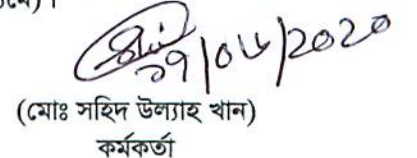 ১৭/০৬/2020
(মোঃ সহিদ উল্যাহ খান)
কর্মকর্তা